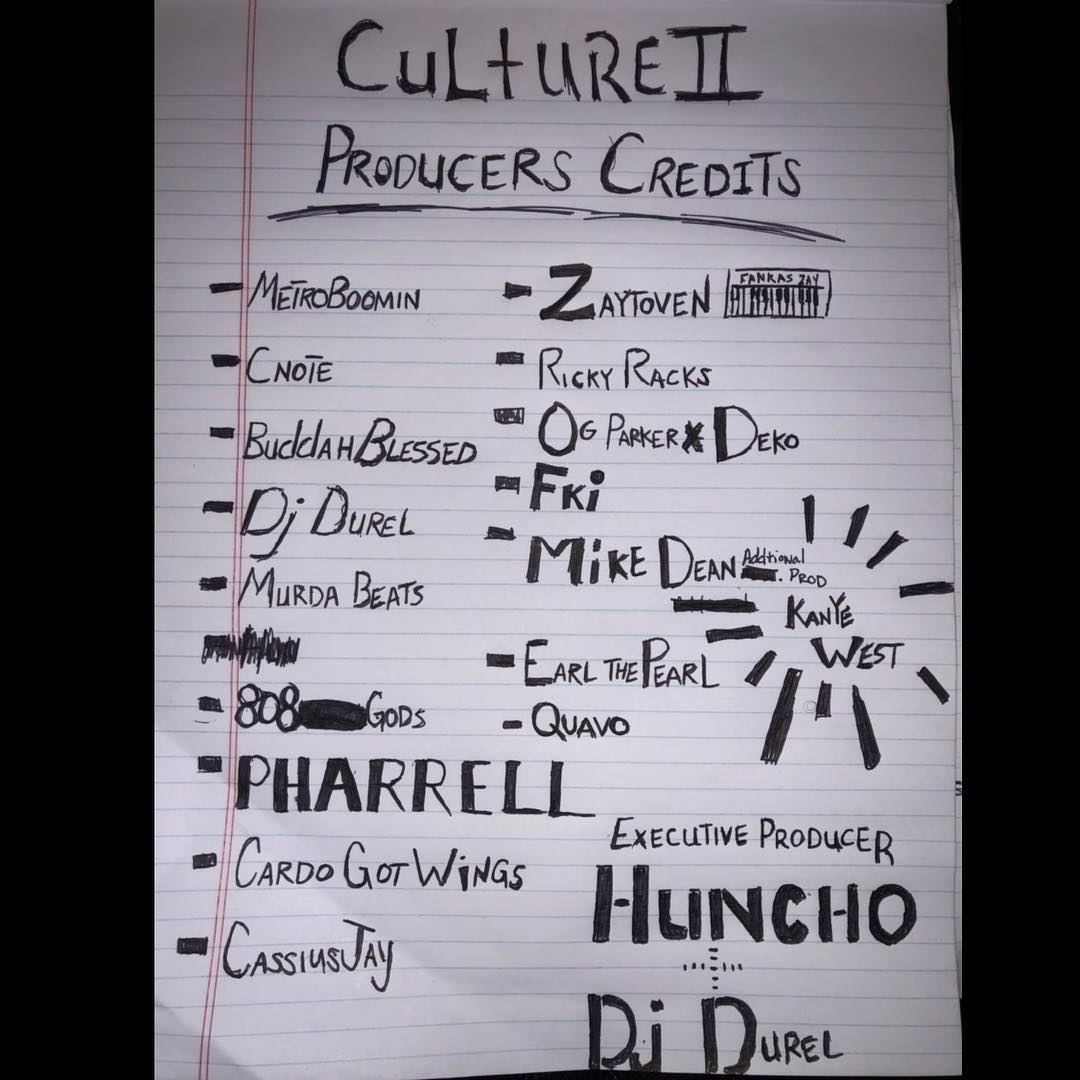 CULTURE II
PRODUCERS CREDITS
- METROBOOMIN
- CNOTE
- BUDDAHBLESSED
- Dj DUREL
- MURDA BEATS
- 808 GODS
- PHARRELL
- CARDO GOT WiNGS
- CASSIUSJAY
- ZAYTOVEN
- RICKY RACKS
- OG PARKER X DEKO
- FKi
- MiKE DEAN Addtional . PROD
KANYE
WEST
- EARL THE PEARL
- QUAVO
EXECUTIVE PRODUCER
HUNCHO
Dj DUREL